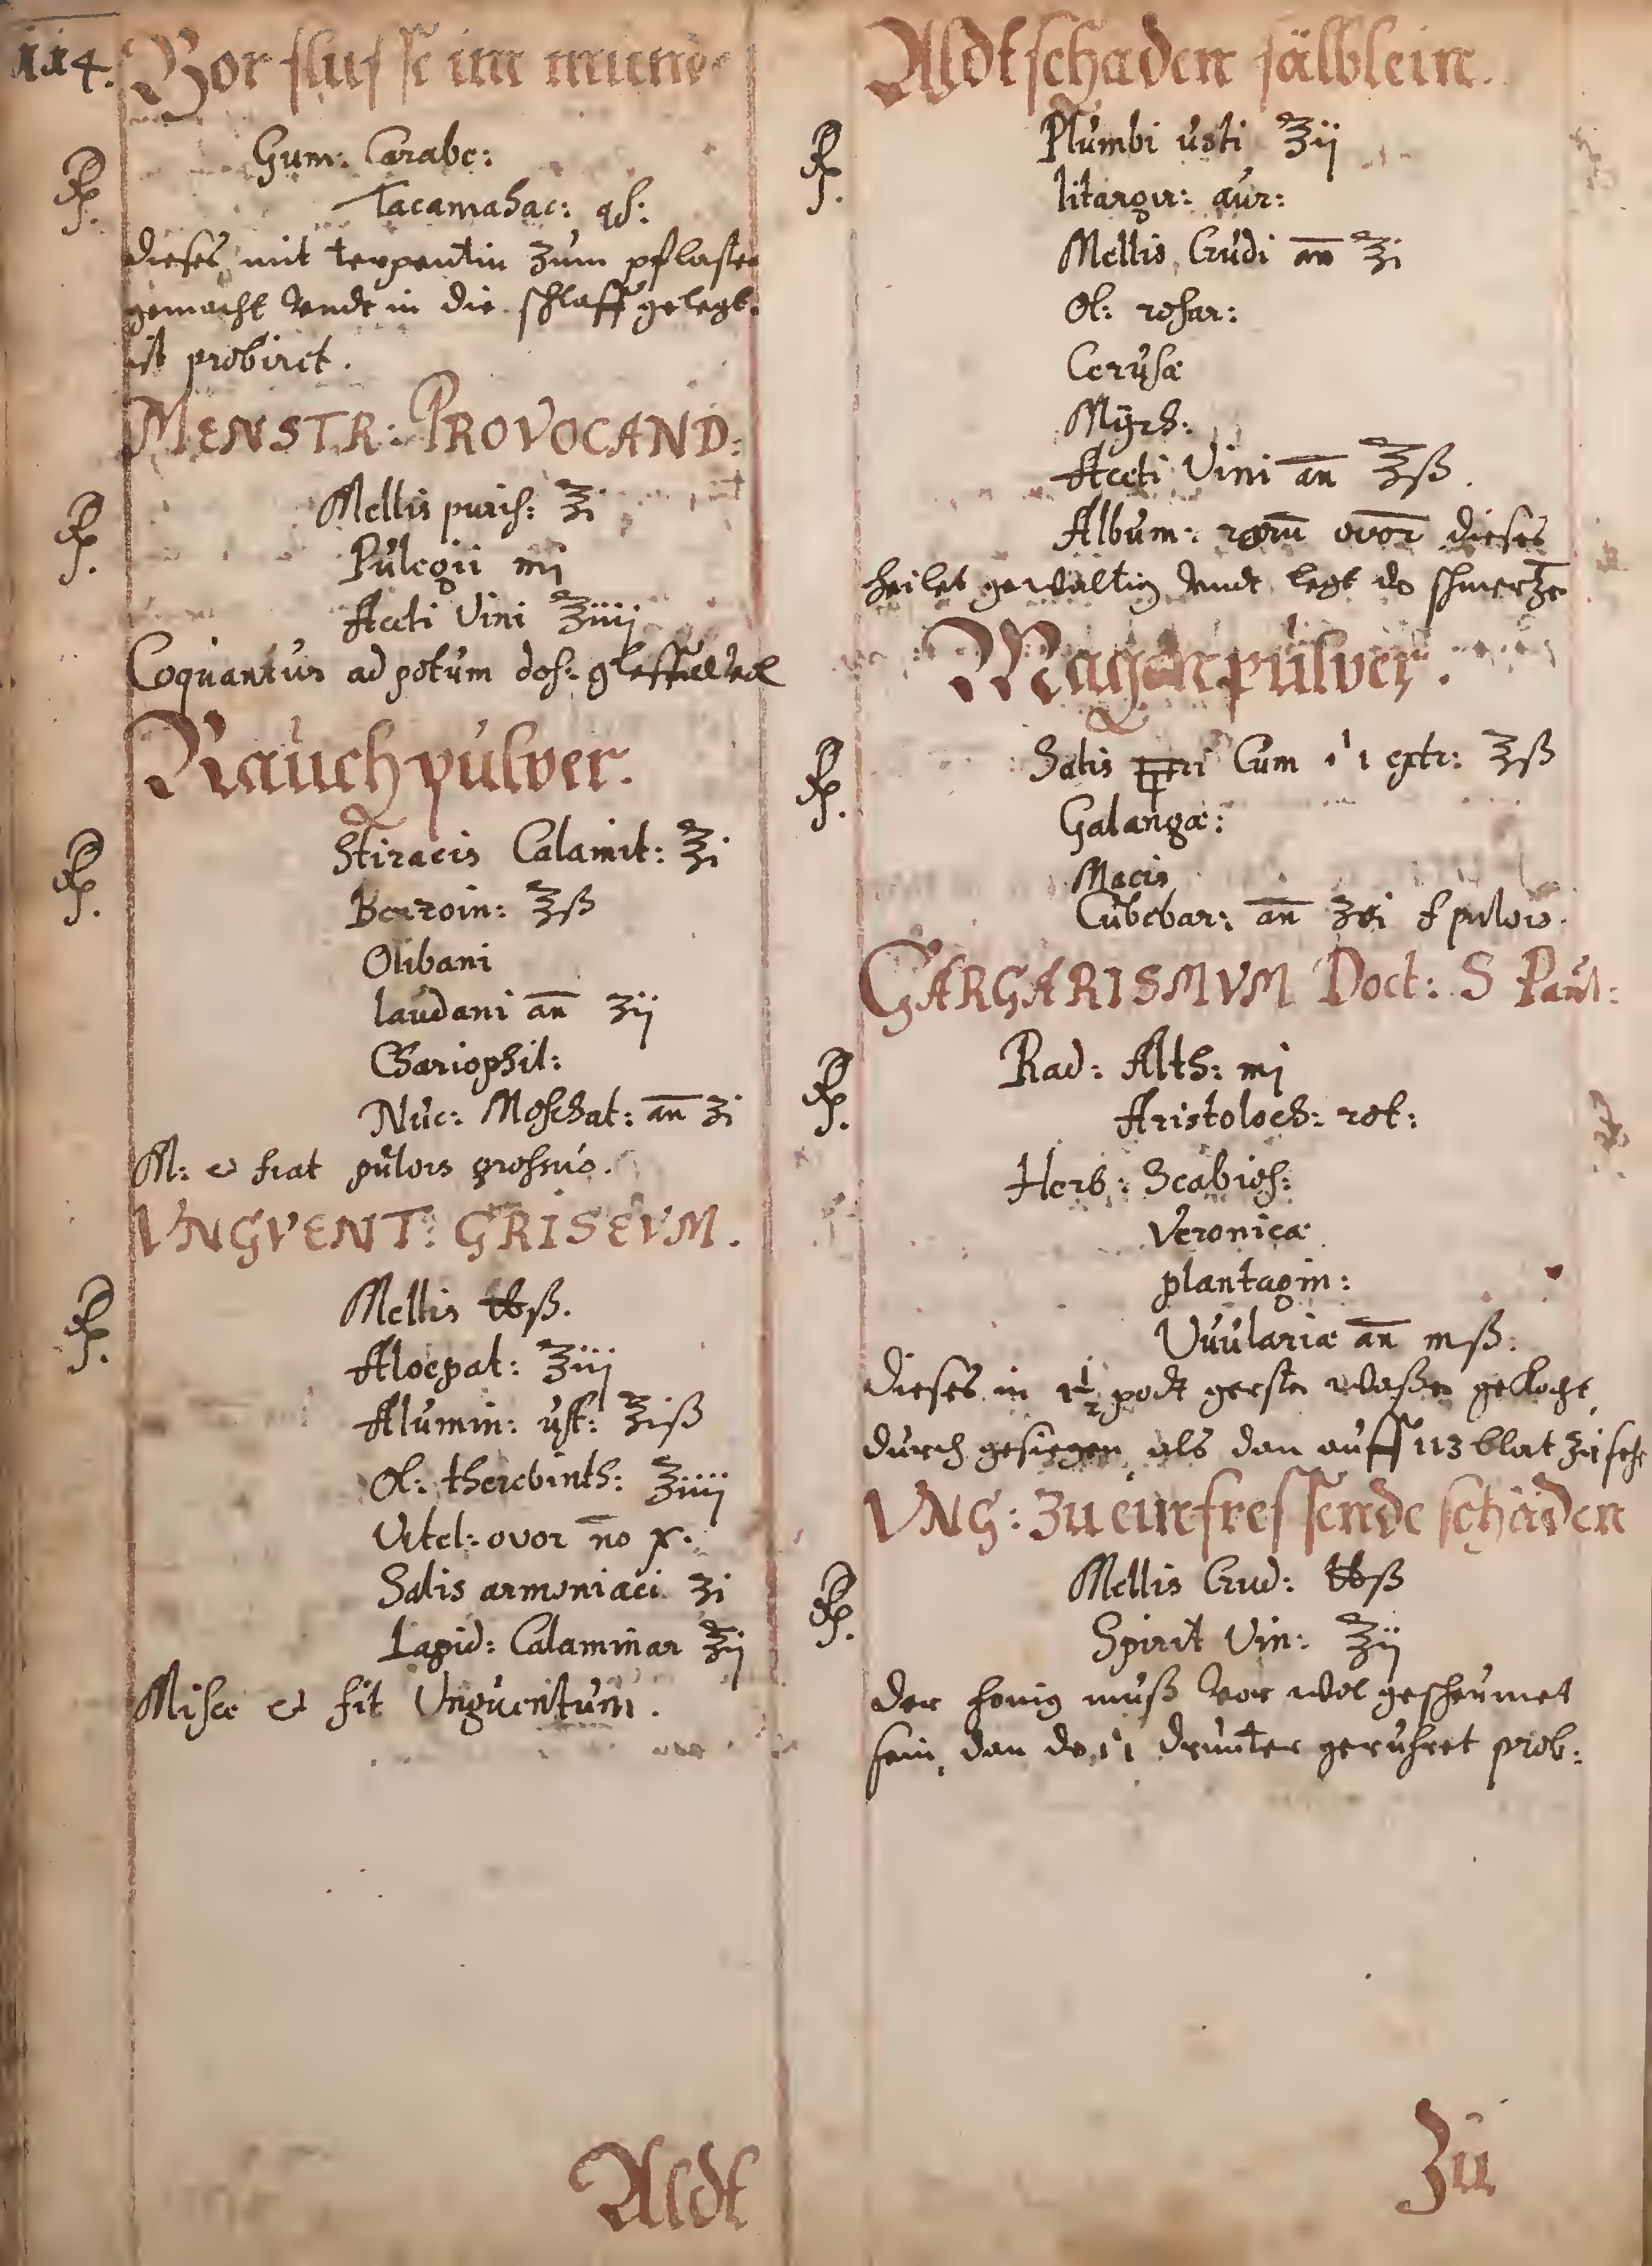 114.
Vor flusse im mund
℞. Gum: Carabe:
Tacamahac: qs:
dieses mit terpentin zum pflaster
gemacht vndt in die schlaff gelegt.
ist probiret.
MENSTR: PROVOCAND:
℞. Mellis puris: ℥i
Pulegii mij
Aceti Vini ℥iiij
Coquantur ad potum dos:
Rauchpulver.
℞. Stiracis Calamit: ℥i
Benzoin: ℥ß
Olibani
laudani an̄ ʒij
Gariophil:
Nuc: Moschat: an̄ ʒi
M: et fiat pulvis grossus.
VNGVENT: GRISEVM.
℞. Mellis ℔ß.
Aloepat: ℥iij
Alumin: ust: ℥iß
Ol: therebinth: ℥iiij
Vitel: ovor n̄o x.
Salis armoniaci ʒi
Lapid: Calaminar ℥ij
Misce et fit Unguentum.
Aldt
Aldtschaden sälblein.
℞. Plumbi usti ℥ij
litargir: aur:
Mellis Crudi an̄ ℥i
Ol: rosar:
Cerusæ
Myrh:
Aceti Vini an̄ ℥ß.
Album: ovor̄ dieses
heilet gewaltig vndt legt de schmertze
Magenpulver.
℞. Salis Cum extr: ℥ß
Galangæ:
Macis
Cubebar: an̄ f pulvis.
GARGARISMVM Doct: S Paul:
℞. Rad: Alth: mj
Aristoloch: rot:
Herb: Scabios:
Veronicæ
plantagin:
Uvulariæ an̄ mß:
dieses in 1½ podt gersten waßer gekocht,
durch gesiegen, als dan auff 113 blat zu seh
VNG: zu einfressende schäden
℞. Mellis Crud: ℔ß
Spirit Vin: ℥ij
der honig muß vor wol gescheumet
sein, dan de drunter geruhret prob:
Zu